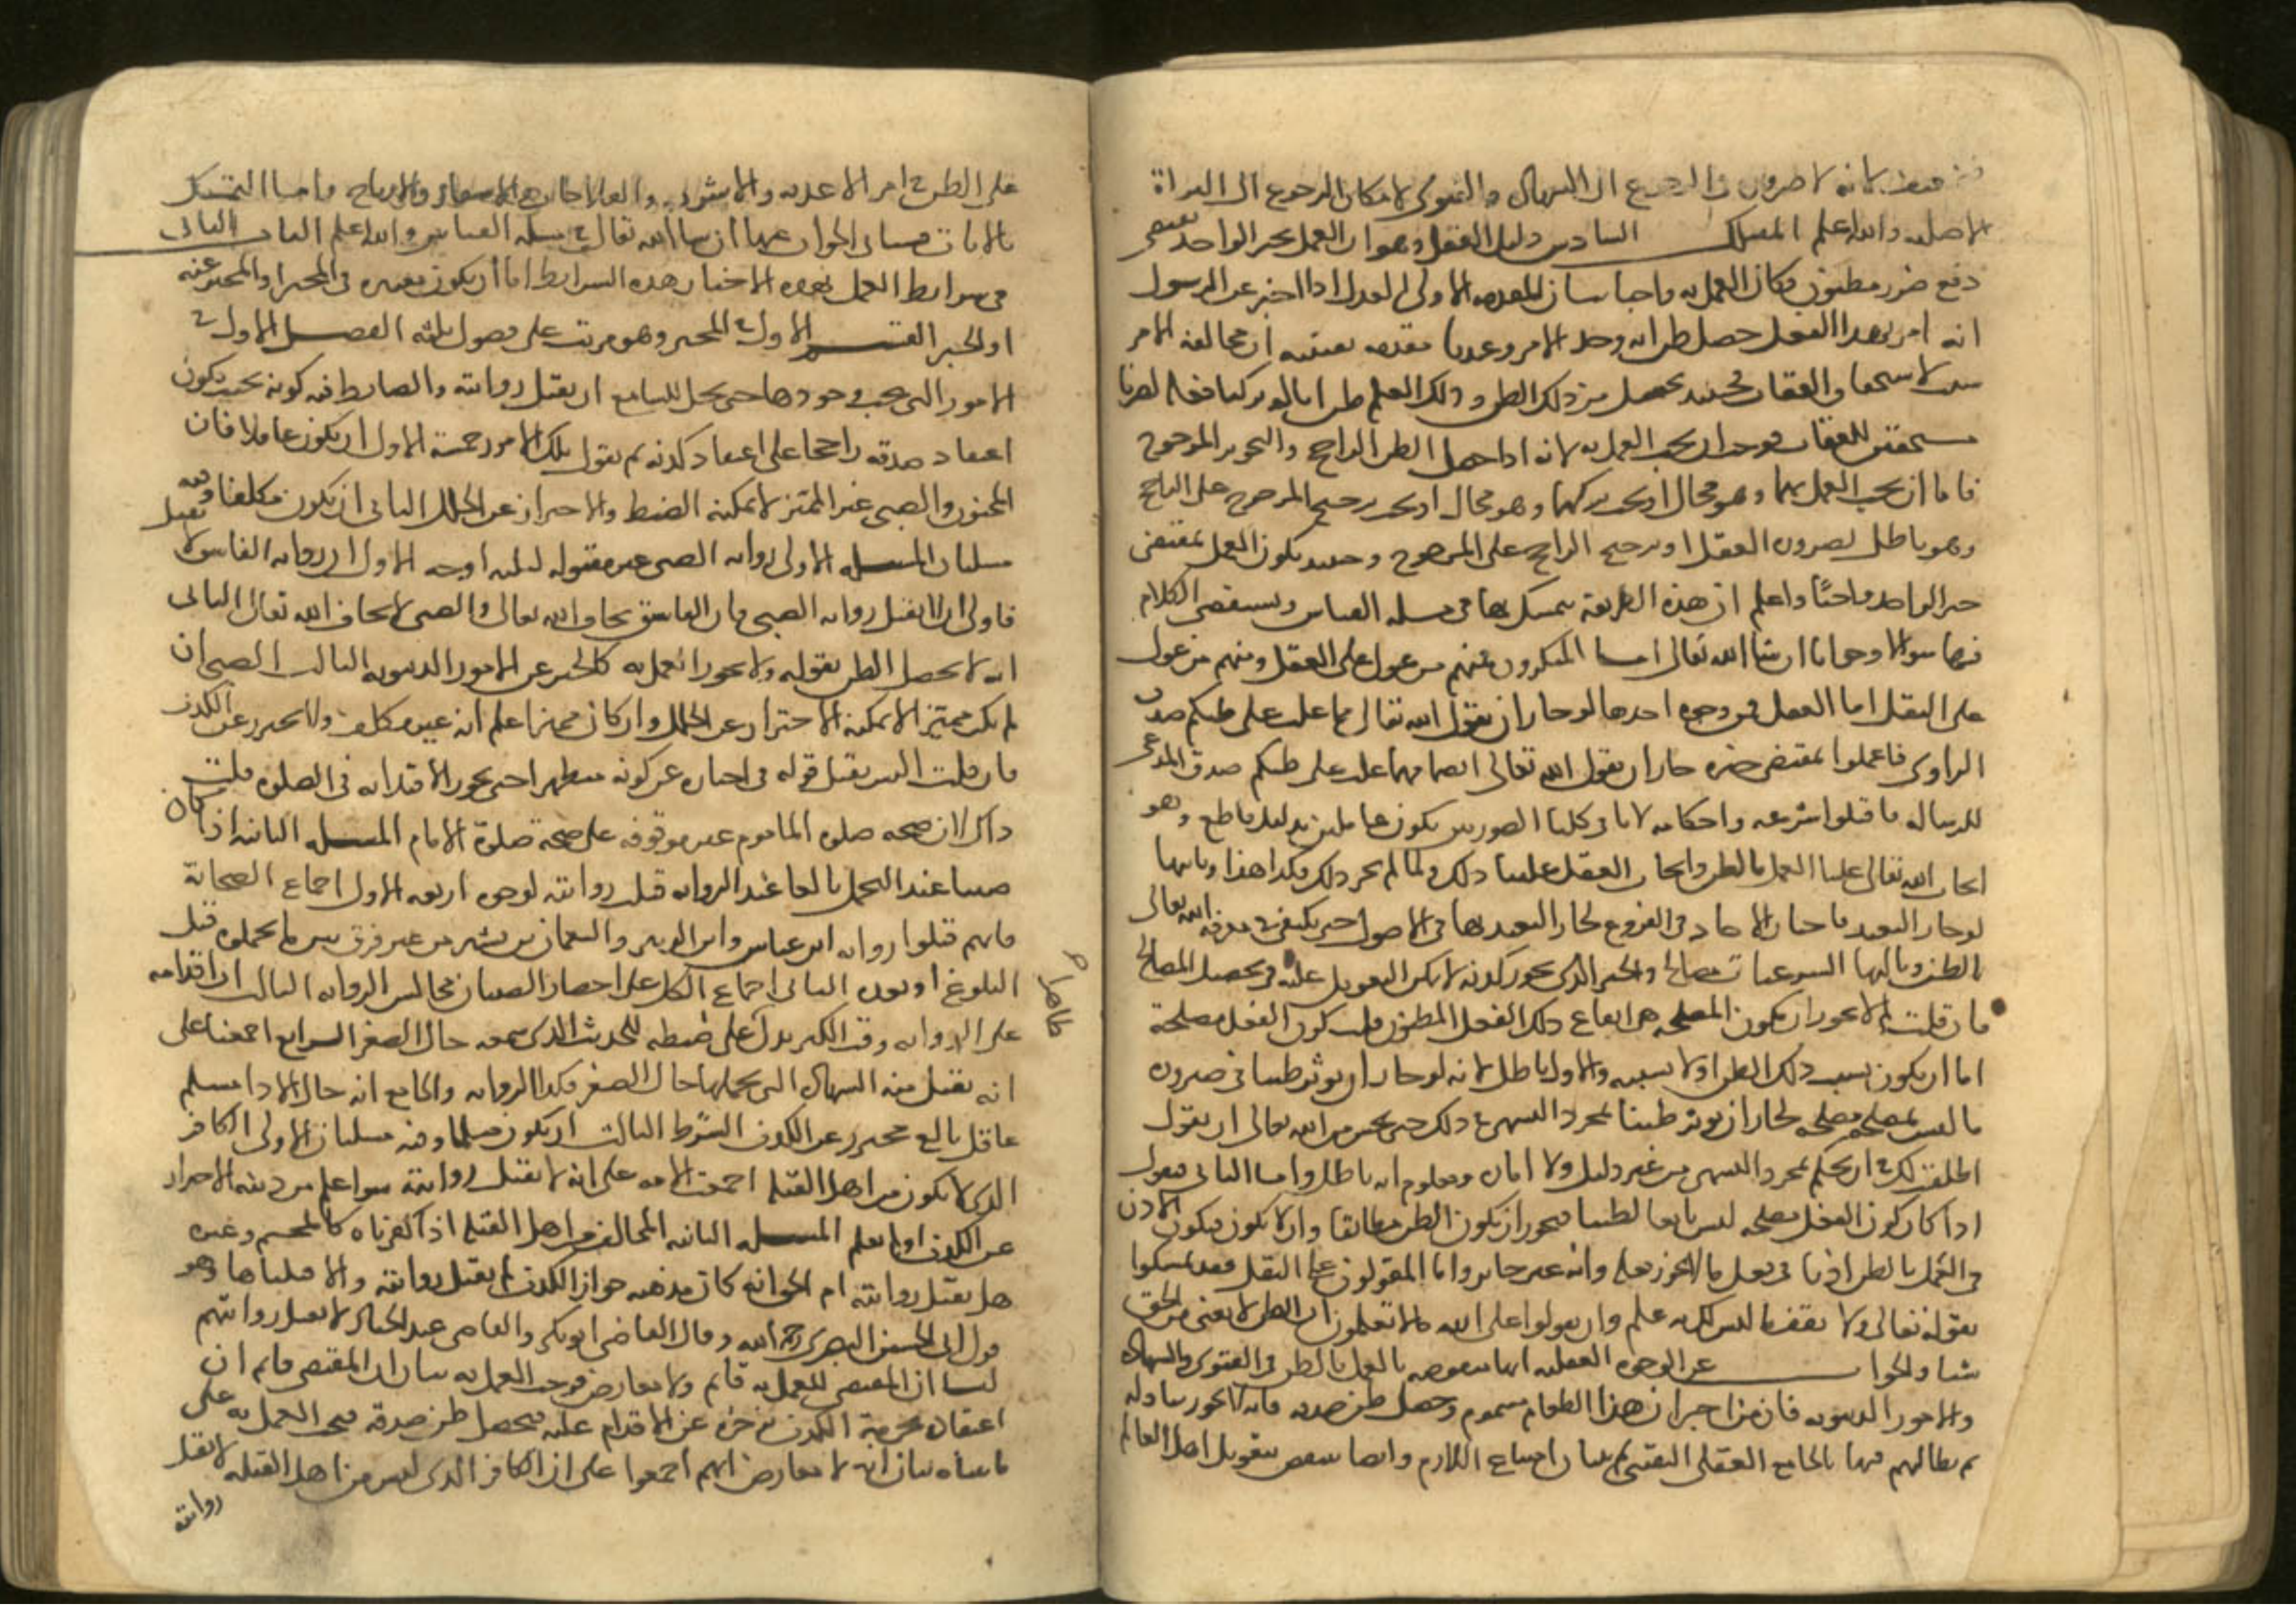 ضعيف لانه لا ضرورة في الرجوع الى الشهادة والفتوى لامكان الرجوع الى البراة
الاصليه والله اعلم المسلك السادس دليل العقل وهو ان العمل بخبر الواحد يقتضي
دفع ضرر مظنون فكان العمل به واجبا بيان المقدمه الاولى ان العدل اذا اخبر عن الرسول
انه امر بهذا الفعل حصل ظن انه وجد الامر وعندنا مقدمه يقينيه ان مخالفة الامر
سبب لاستحقاق العقاب فحينيذ يحصل من ذلك الظن وذلك العلم ظن انا لو تركنا فعله لصرنا
مستحقين للعقاب فوجب ان يجب العمل به لانه اذا حصل الظن الراجح والتجويز المرجوح
فاما ان يجب العمل بهما وهو محال او يجب تركهما وهو محال او يجب ترجيح المرجوح على الراجح
وهو باطل بضرورة العقل او ترجيح الراجح على المرجوح وحينيذ يكون العمل بمقتضى
خبر الواحد واجبًا واعلم ان هذه الطريقة يتمسك بها في مسله القياس ونستقصي الكلام
فيها سوالا وجوابا ان شا الله تعالى اما المنكرون فمنهم من عول على العقل ومنهم من عول
على النقل اما العقل فمن وجوه احدها لو جاز ان يقول الله تعالى مهما غلب على ظنكم صدق
الراوي فاعملوا بمقتضى خبره جاز ان يقول الله تعالى ايضا مهما غلب على ظنكم صدق المدعي
للرساله فاقبلوا شرعه واحكامه لانا في كلتا الصورتين نكون عاملين بدليل قاطع وهو
ايجاب الله تعالى علينا العمل بالظن وايجاب العقل علينا ذلك ولما لم يجز ذلك فكذا هذا وثانيها
لو جاز التعبد باخبار الاحاد في الفروع لجاز التعبد بها في الاصول حتى يكتفى في معرفة الله تعالى
بالظن وثالثها الشرعيات مصالح والخبر الذي يجوز كذبه لا يمكن التعويل عليه في تحصيل المصالح
فان قلت لم لا يجوز ان يكون المصلحه هي ايقاع ذلك الفعل المظنون قلت كون الفعل مصلحة
اما ان يكون بسبب ذلك الظن او لا بسببه والاول باطل لانه لو جاز ان يوثر ظننا في صيرورة
ما ليس بمصلحه مصلحه لجاز ان يوثر ظننا بمجرد التشهي في ذلك حتى يحسن من الله تعالى ان يقول
اطلقت لك في ان تحكم بمجرد التشهي من غير دليل ولا اماره ومعلوم انه باطل واما الثاني فنقول
اذا كان كون الفعل مصلحه ليس تابعا لظننا فيجوز ان يكون الظن مطابقا وان لا يكون فيكون الاذن
في العمل بالظن اذنا في فعل ما لا يجوز فعله وانه غير جايز واما المعولون على النقل فقد تمسكوا
بقوله تعالى ولا تقف ما ليس لك به علم وان تقولوا على الله ما لا تعلمون ان الظن لا يغني من الحق
شيا والجواب عن الوجوه العقليه انها منقوضه بالعمل بالظن في الفتوى والشهاده
والامور الدنيويه فان من اخبر ان هذا الطعام مسموم وحصل ظن صدقه فانه لا يجوز تناوله
ثم نطالبهم فيها بالجامع العقلي اليقيني ثم بيان امتناع اللازم وايضا ينتقض بتعويل اهل العالم
على الظن في امر الاغذيه والاشربه والعلاجات في الاسفار والارباح واما التمسك
بالايات فسياتي الجواب عنها ان شا الله تعالى في مسله القياس والله اعلم الباب الثاني
في شرايط العمل بهذه الاخبار هذه الشرايط اما ان يكون معتبره في المخبر او المخبر عنه
او الخبر القسم الاول في المخبر وهو مرتب على فصول ثلثه الفصل الاول في
الامور التي يجب وجودها حتى يحل للسامع ان يقبل روايته والضابط فيه كونه بحيث يكون
اعتقاد صدقه راجحا على اعتقاد كذبه ثم نقول تلك الامور خمسة الاول ان يكون عاقلا فان
المجنون والصبي غير المميز لا يمكنه الضبط والاحتراز عن الخلل الثاني ان يكون مكلفا وفيه
مسلتان المسله الاولى رواية الصبي غير مقبوله لثلثه اوجه الاول ان رواية الفاسق لا تقبل
فاولى ان لا تقبل رواية الصبي فان الفاسق يخاف الله تعالى والصبي لا يخاف الله تعالى الثاني
انه لا يحصل الظن بقوله ولا يجوز العمل به كالخبر عن الامور الدنيويه الثالث الصبي ان
لم يكن مميزا لا يمكنه الاحتراز عن الخلل وان كان مميزا علم انه غير مكلف ولا يحترز عن الكذب
فان قلت اليس يقبل قوله في اخباره عن كونه متطهرا حتى يجوز الاقتدا به في الصلوة قلت
ذاك لان صحة صلوة الماموم غير موقوفه على صحة صلوة الامام المسله الثانيه اذا كان
صبيا عند التحمل بالغا عند الروايه قبلت روايته لوجوه اربعه الاول اجماع الصحابة
فانهم قبلوا روايه ابن عباس وابن الزبير والنعمان بن بشير من غير فرق بين ما تحملوه قبل
البلوغ او بعده الثاني اجماع الكل على احضار الصبيان مجالس الروايه الثالث ان اقدامه
على الروايه وقت الكبر يدل على ضبطه للحديث الذي سمعه حال الصغر الرابع اجمعنا على
انه تقبل منه الشهاده التي تحملها حال الصغر فكذا الروايه والجامع انه حال الادا مسلم
عاقل بالغ محترز عن الكذب الشرط الثالث ان يكون مسلما وفيه مسلتان الاولى الكافر
الذي لا يكون من اهل القبله اجمعت الامه على انه لا تقبل روايته سوا علم من دينه الاحتراز
عن الكذب او لم يعلم المسله الثانيه المخالف من اهل القبله اذا كفرناه كالمجسم وغيره
هل تقبل روايته ام لا الحق انه كان مذهبه جواز الكذب لم تقبل روايته والا قبلناها وهو
قول ابي الحسين البصري رحمه الله وقال القاضي ابو بكر والقاضي عبد الجبار لا تقبل روايتهم
لنا ان المقتضي للعمل به قايم ولا معارض فوجب العمل به بيان ان المقتضي قايم ان
اعتقاده تحرمة الكذب يزجره عن الاقدام عليه فيحصل ظن صدقه فيجب العمل به على
ما بيناه بيان انه لا معارض انهم اجمعوا على ان الكافر الذي ليس من اهل القبله لا تقبل
روايته